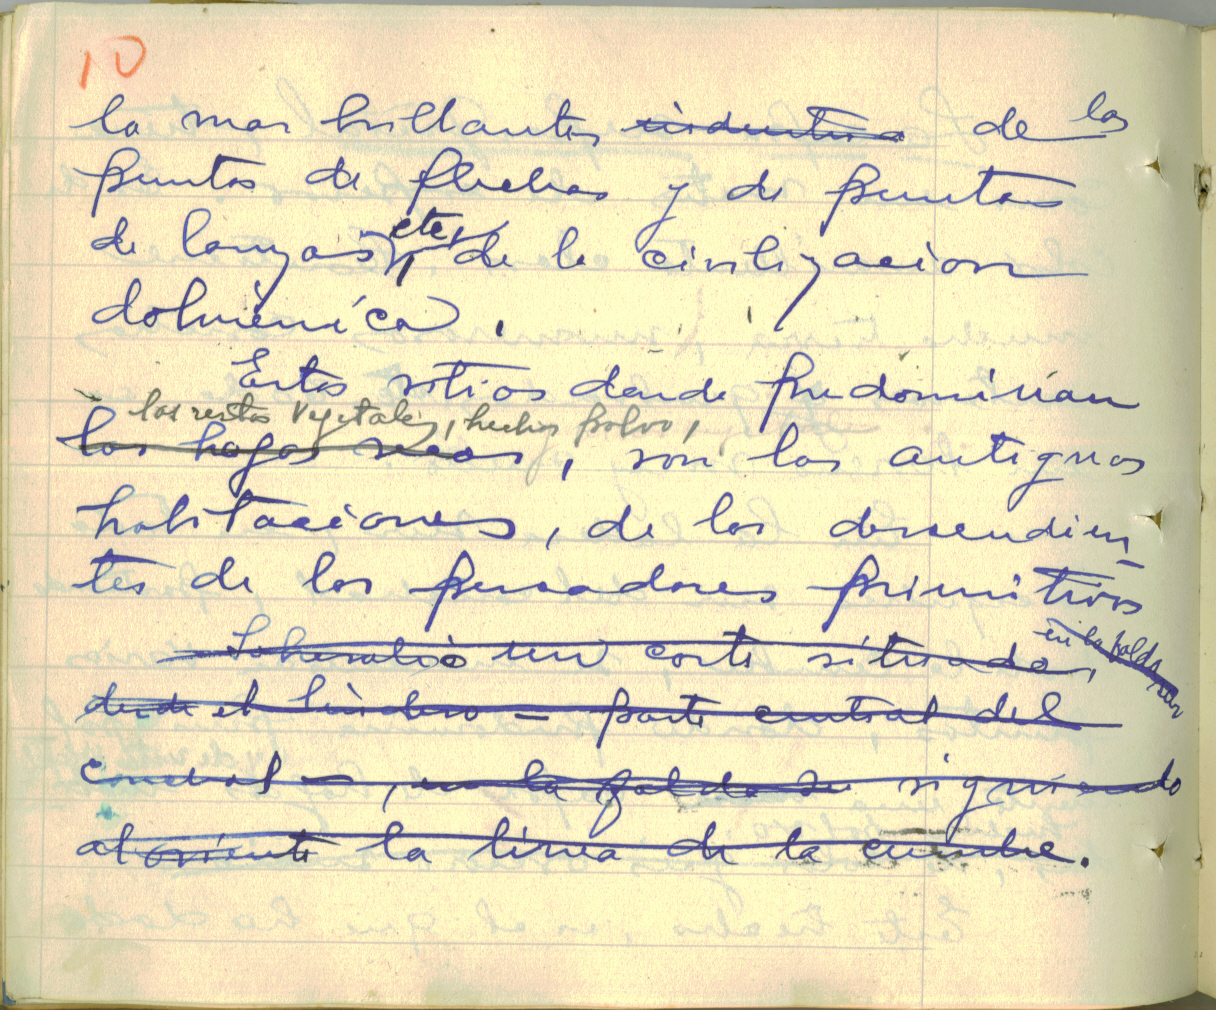 10
la mas brillantes industria de las
puntas de flechas y de puntas
de lanzas, etc, de la civilizacion
dolménica.
Estos sitios donde predominan
los restos vegetales, hechos polvo,
las hojas secas, son las antiguas
habitaciones, de los descendien-
tes de los pescadores primitivos
un corte situado, en la falda sur
desde el lindero - parte central del
conchal -, en la falda su siguiendo
al oriente la línea de la cumbre.